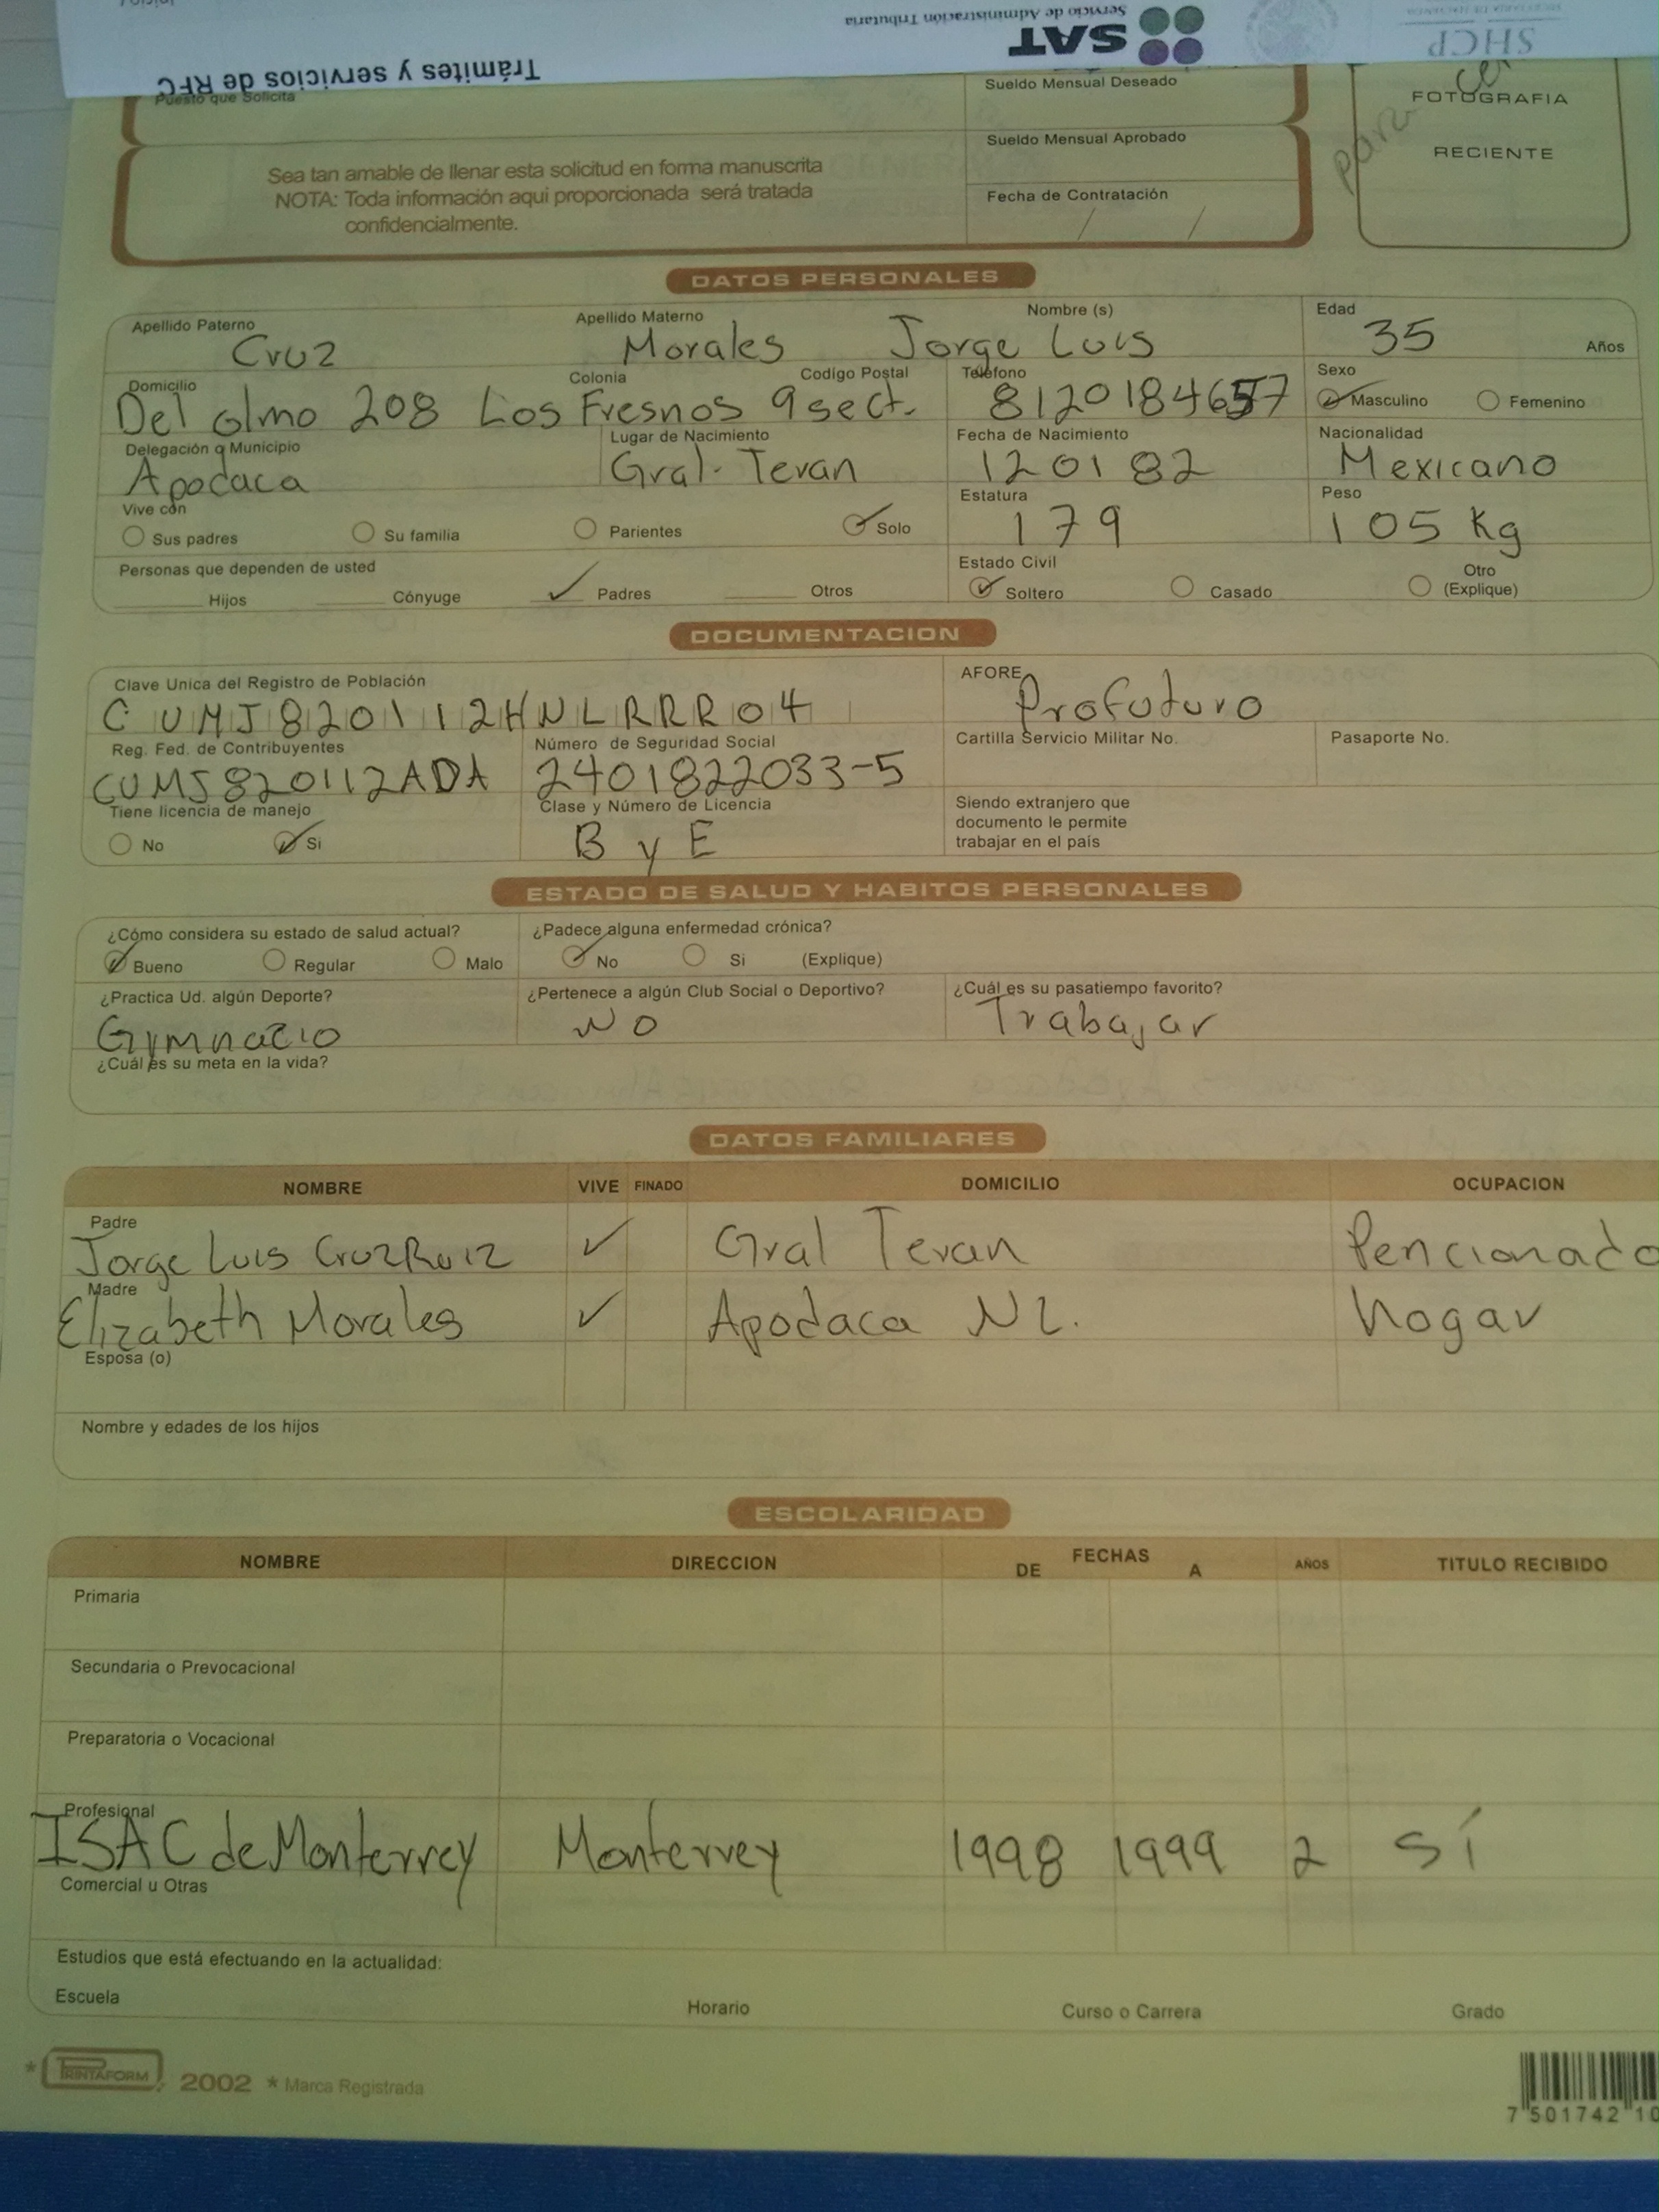 Trámites y servicios de RFC
SAT
Servicio de Administración Tributaria
SHCP
Puesto que Solicita
Sueldo Mensual Deseado
Sueldo Mensual Aprobado
Fecha de Contratación
/ /
Sea tan amable de llenar esta solicitud en forma manuscrita
NOTA: Toda información aqui proporcionada será tratada
confidencialmente.
FOTOGRAFIA
RECIENTE
para
DATOS PERSONALES
Apellido Paterno Apellido Materno Nombre (s) Edad
Cruz Morales Jorge Luis 35 Años
Domicilio Colonia Codigo Postal Teléfono Sexo
Del olmo 208 Los Fresnos 9 sect. 8120184657 Masculino Femenino
Delegación o Municipio Lugar de Nacimiento Fecha de Nacimiento Nacionalidad
Apodaca Gral. Teran 120182 Mexicano
Vive con Estatura Peso
Sus padres Su familia Parientes Solo 179 105 Kg
Personas que dependen de usted Estado Civil
Hijos Cónyuge Padres Otros Soltero Casado Otro (Explique)
DOCUMENTACION
Clave Unica del Registro de Población AFORE
CUMJ820112HNLRRR04 Profuturo
Reg. Fed. de Contribuyentes Número de Seguridad Social Cartilla Servicio Militar No. Pasaporte No.
CUMJ820112ADA 2401822033-5
Tiene licencia de manejo Clase y Número de Licencia Siendo extranjero que
documento le permite
trabajar en el país
No Si B y E
ESTADO DE SALUD Y HABITOS PERSONALES
¿Cómo considera su estado de salud actual? ¿Padece alguna enfermedad crónica?
Bueno Regular Malo No Si (Explique)
¿Practica Ud. algún Deporte? ¿Pertenece a algún Club Social o Deportivo? ¿Cuál es su pasatiempo favorito?
Gymnacio NO Trabajar
¿Cuál es su meta en la vida?
DATOS FAMILIARES
NOMBRE VIVE FINADO DOMICILIO OCUPACION
Padre
Jorge Luis Cruz Ruiz ✓ Gral Teran Pencionado
Madre
Elizabeth Morales ✓ Apodaca NL. hogar
Esposa (o)
Nombre y edades de los hijos
ESCOLARIDAD
NOMBRE DIRECCION FECHAS DE A AÑOS TITULO RECIBIDO
Primaria
Secundaria o Prevocacional
Preparatoria o Vocacional
Profesional
ISAC de Monterrey Monterrey 1998 1999 2 sí
Comercial u Otras
Estudios que está efectuando en la actualidad:
Escuela Horario Curso o Carrera Grado
* PRINTAFORM 2002 * Marca Registrada
7 501742 10